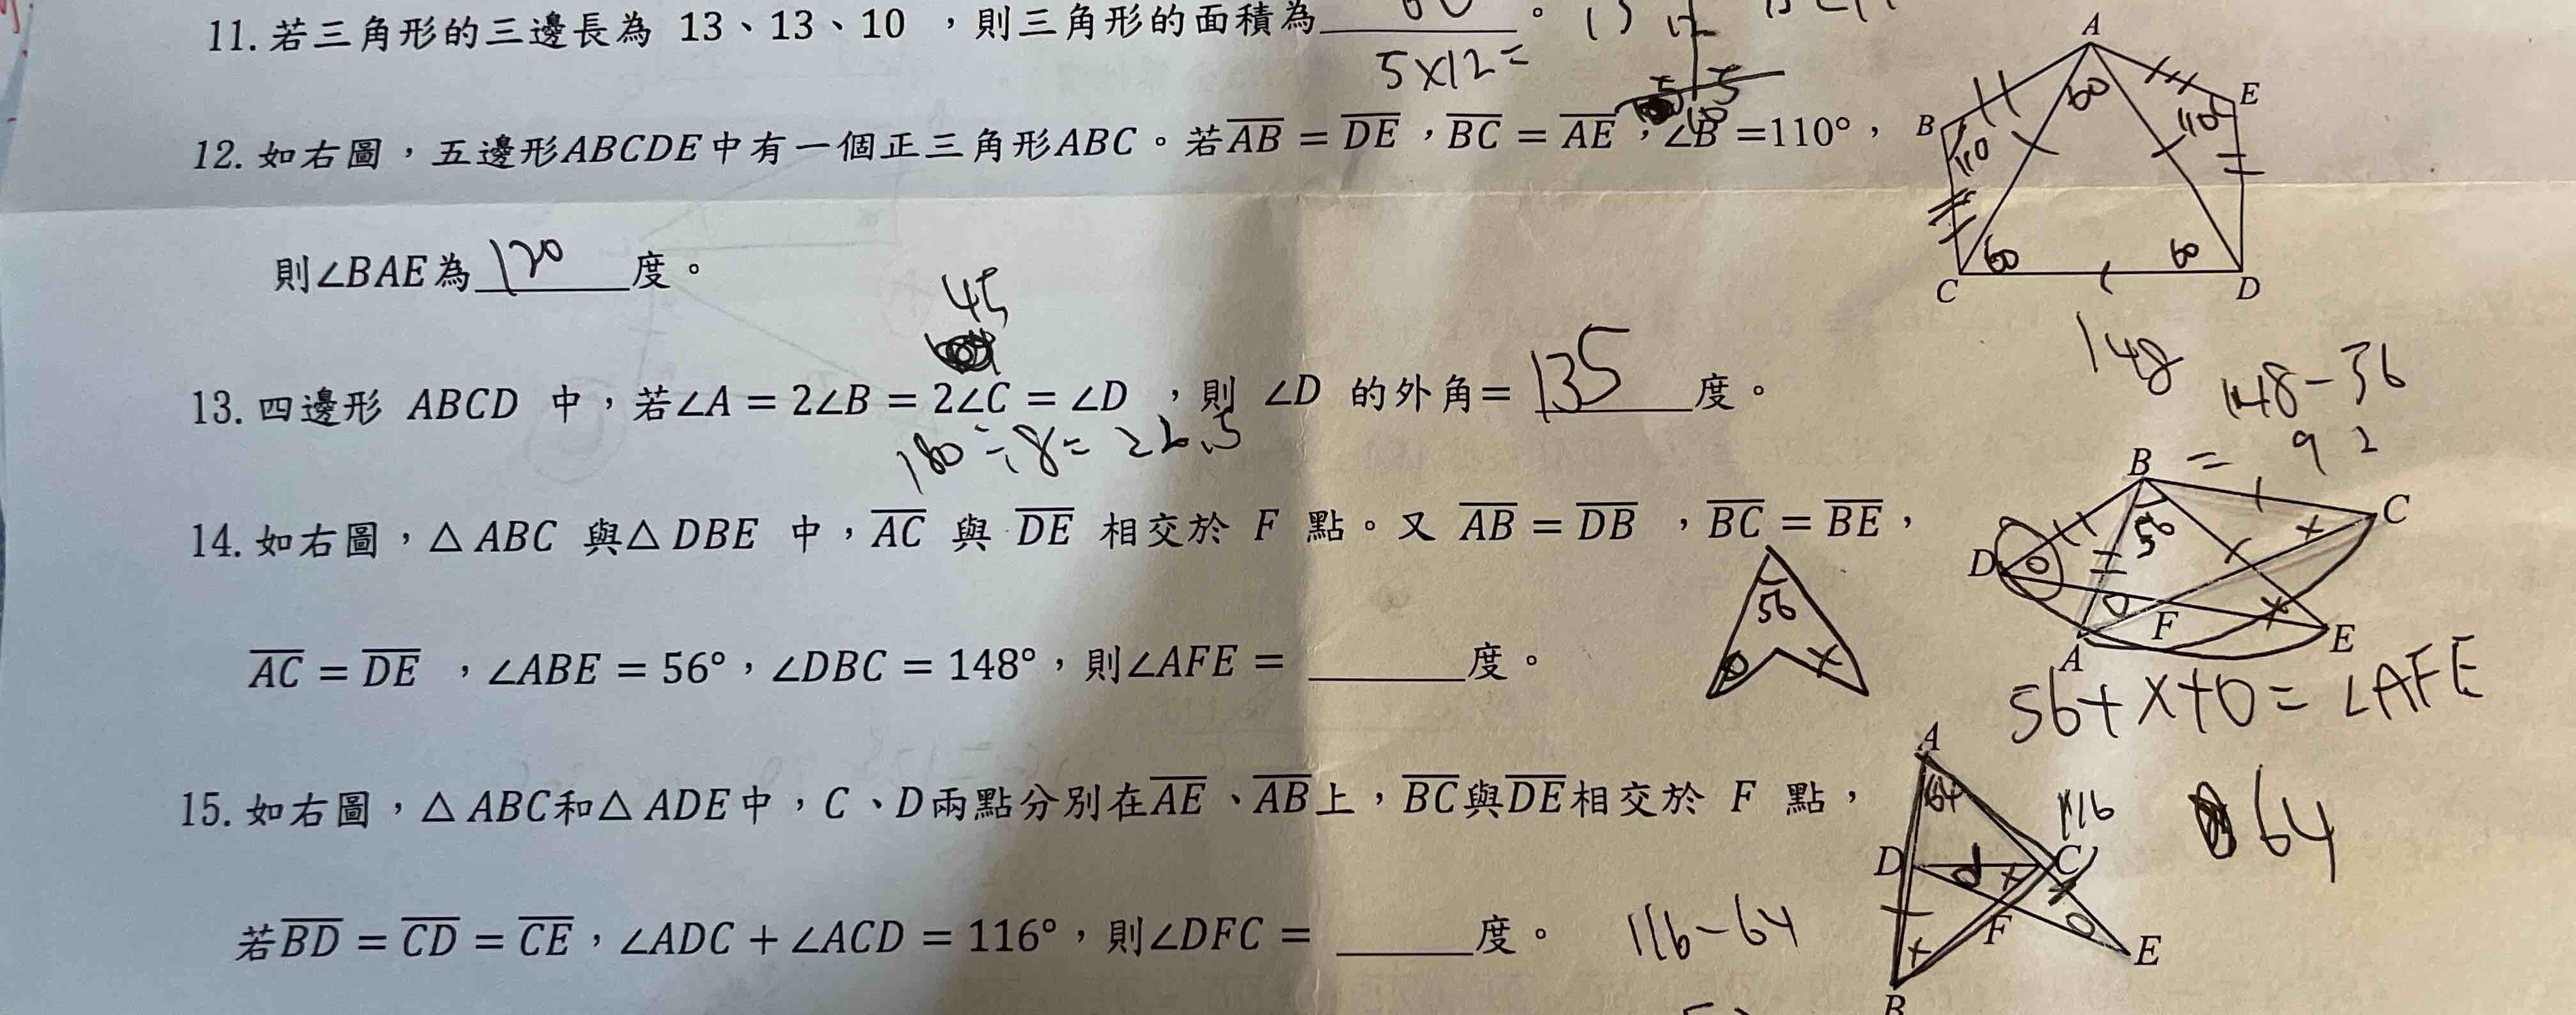 11. 若三角形的三邊長為 13、13、10 ，則三角形的面積為 60 。
5×12=
5 5
12. 如右圖，五邊形ABCDE中有一個正三角形ABC。若AB = DE，BC = AE，∠B =110°，
則∠BAE為 120 度。
A
B
E
C
D
60
110
110
60
60
45
13. 四邊形 ABCD 中，若∠A = 2∠B = 2∠C = ∠D ，則 ∠D 的外角= 135 度。
180÷8= 22.5
148
148-56
= 92
14. 如右圖，△ABC 與△DBE 中，AC 與 DE 相交於 F 點。又 AB = DB ，BC = BE，
AC = DE ，∠ABE = 56°，∠DBC = 148°，則∠AFE = 度。
B
C
D
F
A
E
56
O
×
56
O
O
×
×
56+×+O= ∠AFE
15. 如右圖，△ABC和△ADE中，C、D兩點分別在AE、AB上，BC與DE相交於 F 點，
若BD = CD = CE，∠ADC + ∠ACD = 116°，則∠DFC = 度。
116-64
A
64
D
C
F
E
B
116
O
×
×
O
64